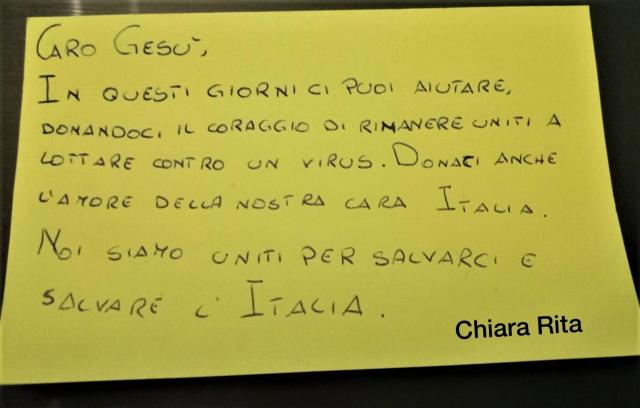 CARO GESU',
IN QUESTI GIORNI CI PUOI AIUTARE,
DONANDOCI IL CORAGGIO DI RIMANERE UNITI A
LOTTARE CONTRO UN VIRUS. DONACI ANCHE
L'AMORE DELLA NOSTRA CARA ITALIA.
NOI SIAMO UNITI PER SALVARCI E
SALVARE L'ITALIA.
Chiara Rita